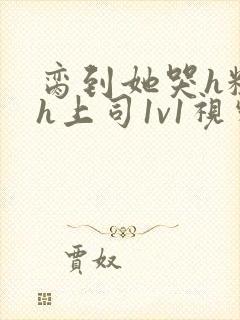 脔到她哭h粗
h上司1v1視
賈奴